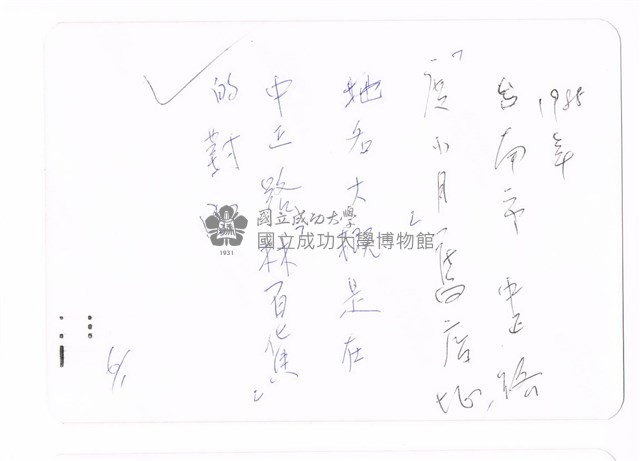 1985年
台南市 中正路
「度小月」舊店址,
地名大概是在
中正路林百貨」
的對
國立成功大學
國立成功大學博物館
1931